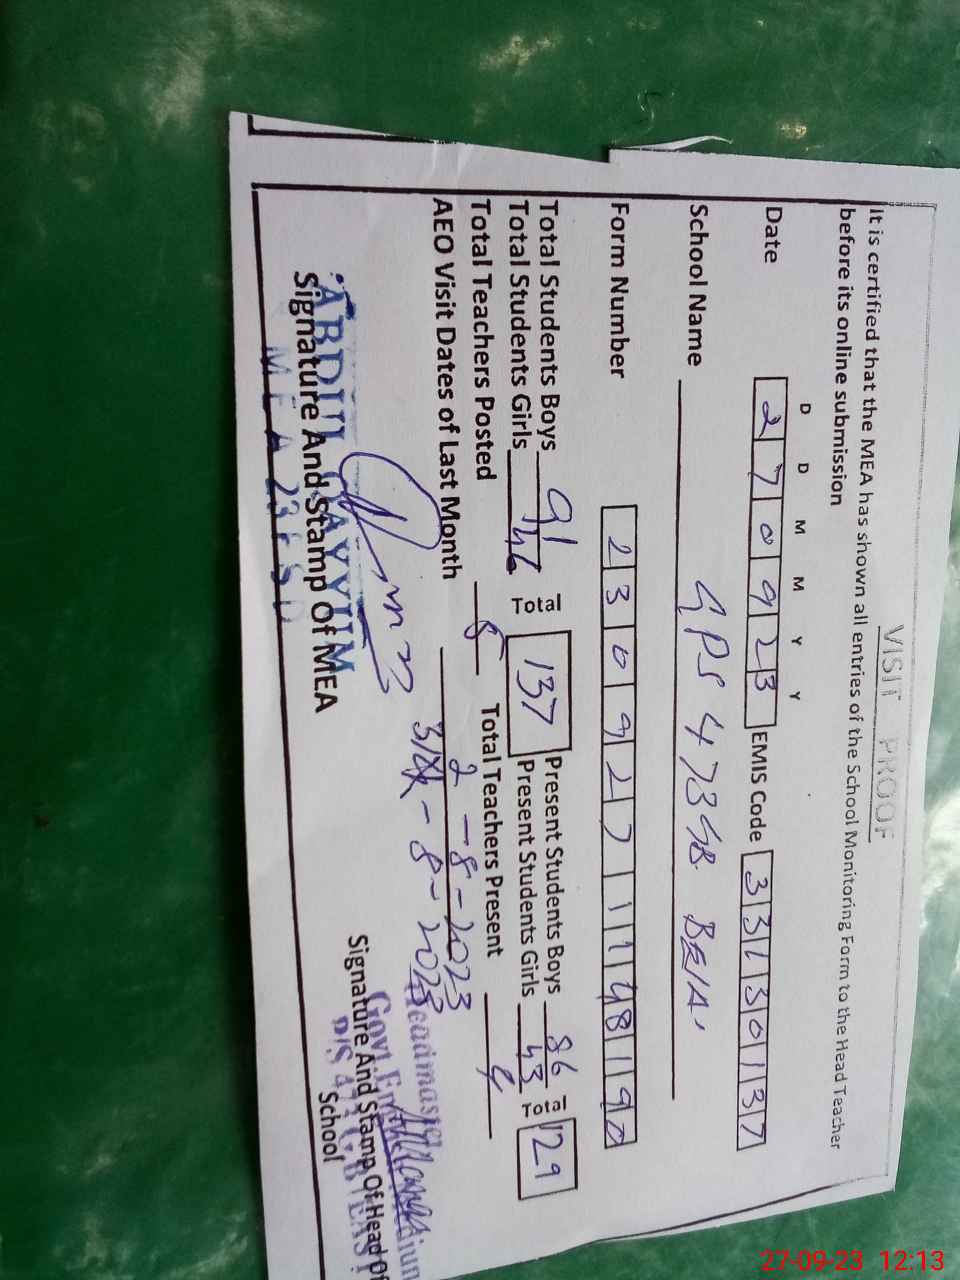 VISIT PROOF
It is certified that the MEA has shown all entries of the School Monitoring Form to the Head Teacher
before its online submission
D D M M Y Y
Date 270923 EMIS Code 33130137
School Name GPS 473 GB
Form Number 230927 1148190
Total Students Boys 91 Total 137 Present Students Boys 86 Total 129
Total Students Girls 46 Present Students Girls 43
Total Teachers Posted 5 Total Teachers Present 4
AEO Visit Dates of Last Month 2-8-2023
31 - 8 - 2023
ABDUL QAYYUM
Signature And Stamp Of MEA
MEA 23 FSD
Headmaster
Govt.
P/S 473 GB EAST
Signature And Stamp Of Head Of
School
27-09-23 12:13